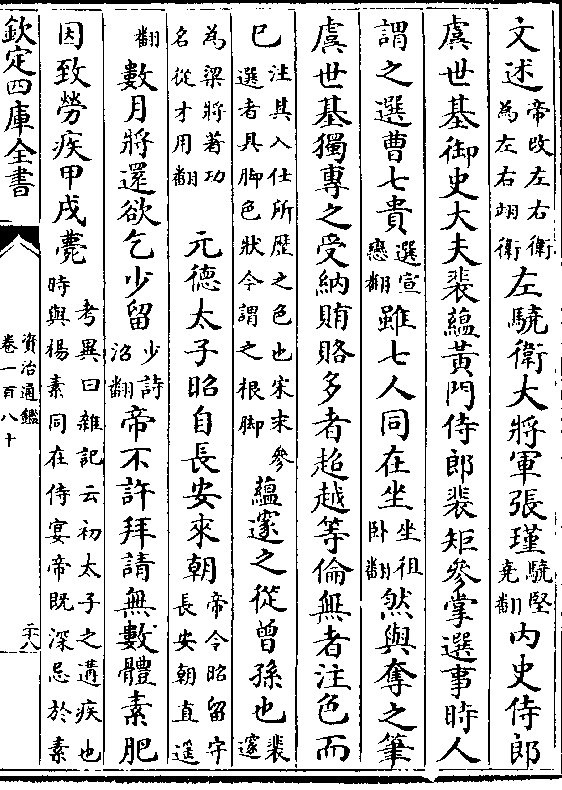 文述帝改左右衛為左右翊衛左驍衛大將軍張瑾驍堅堯翻內史侍郎
虞世基御史大夫裴蘊黄門侍郎裴矩參掌選事時人
謂之選曹七貴選宣戀翻雖七人同在坐坐徂卧翻然與奪之筆
虞世基獨專之受納賄賂多者超越等倫無者注色而
已注其入仕所歴之色也宋末參選者具脚色狀今謂之根脚蘊邃之從曾孫也裴邃
為梁將著功名從才用翻元德太子昭自長安來朝帝令昭留守長安朝直遥
翻數月將還欲乞少留少詩沼翻帝不許拜請無數體素肥
因致勞疾甲戌薨考異曰雜記云初太子之遘疾也時與楊素同在侍宴帝既深忌於素
欽定四庫全書
資治通鑑
卷一百八十